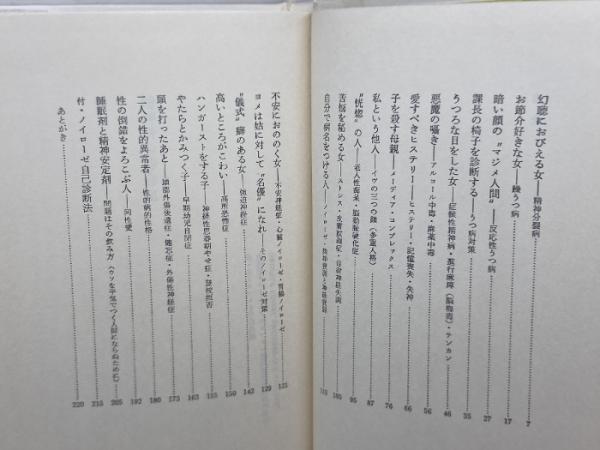 幻聴におびえる女——精神分裂病 7
お節介好きな女——躁うつ病 17
暗い顔の〝マジメ人間〟——反応性うつ病 27
課長の椅子を診断する——うつ病対策 35
うつろな目をした女——症候性精神病・進行麻痺(脳梅毒)・テンカン 46
悪魔の囁き——アルコール中毒・麻薬中毒 56
愛すべきヒステリー——ヒステリー・記憶喪失・失神 66
子を殺す母親——メーディア・コンプレックス 76
私という他人——イヴの三つの顔(多重人格) 87
〝恍惚〟の人——老人性痴呆・脳動脈硬化症 95
苦悩を秘める女——ストレス・皮膚・自律神経失調 105
自分で病名をつける人——ノイローゼ・ 115
不安におののく女——不安神経症・心臓ノイローゼ・胃腸ノイローゼ 125
ヨメは姑に対して〝名優〟になれ——そのノイローゼ対策 129
〝儀式〟癖のある女——強迫神経症 142
高いところがこわい——高所恐怖症 150
ハンガーストをする子——神経性思春期やせ症・登校拒否 155
やたらとかみつく子——早期幼児自閉症 163
頭を打ったあと——頭部外傷後遺症・健忘症・外傷性神経症 173
二人の性的異常者——性的病的性格 180
性の倒錯をよろこぶ人——同性愛 192
睡眠剤と精神安定剤——問題はその飲み方(ウソを平気でつく人間にならぬために) 205
付・ノイローゼ自己診断法 215
あとがき 220